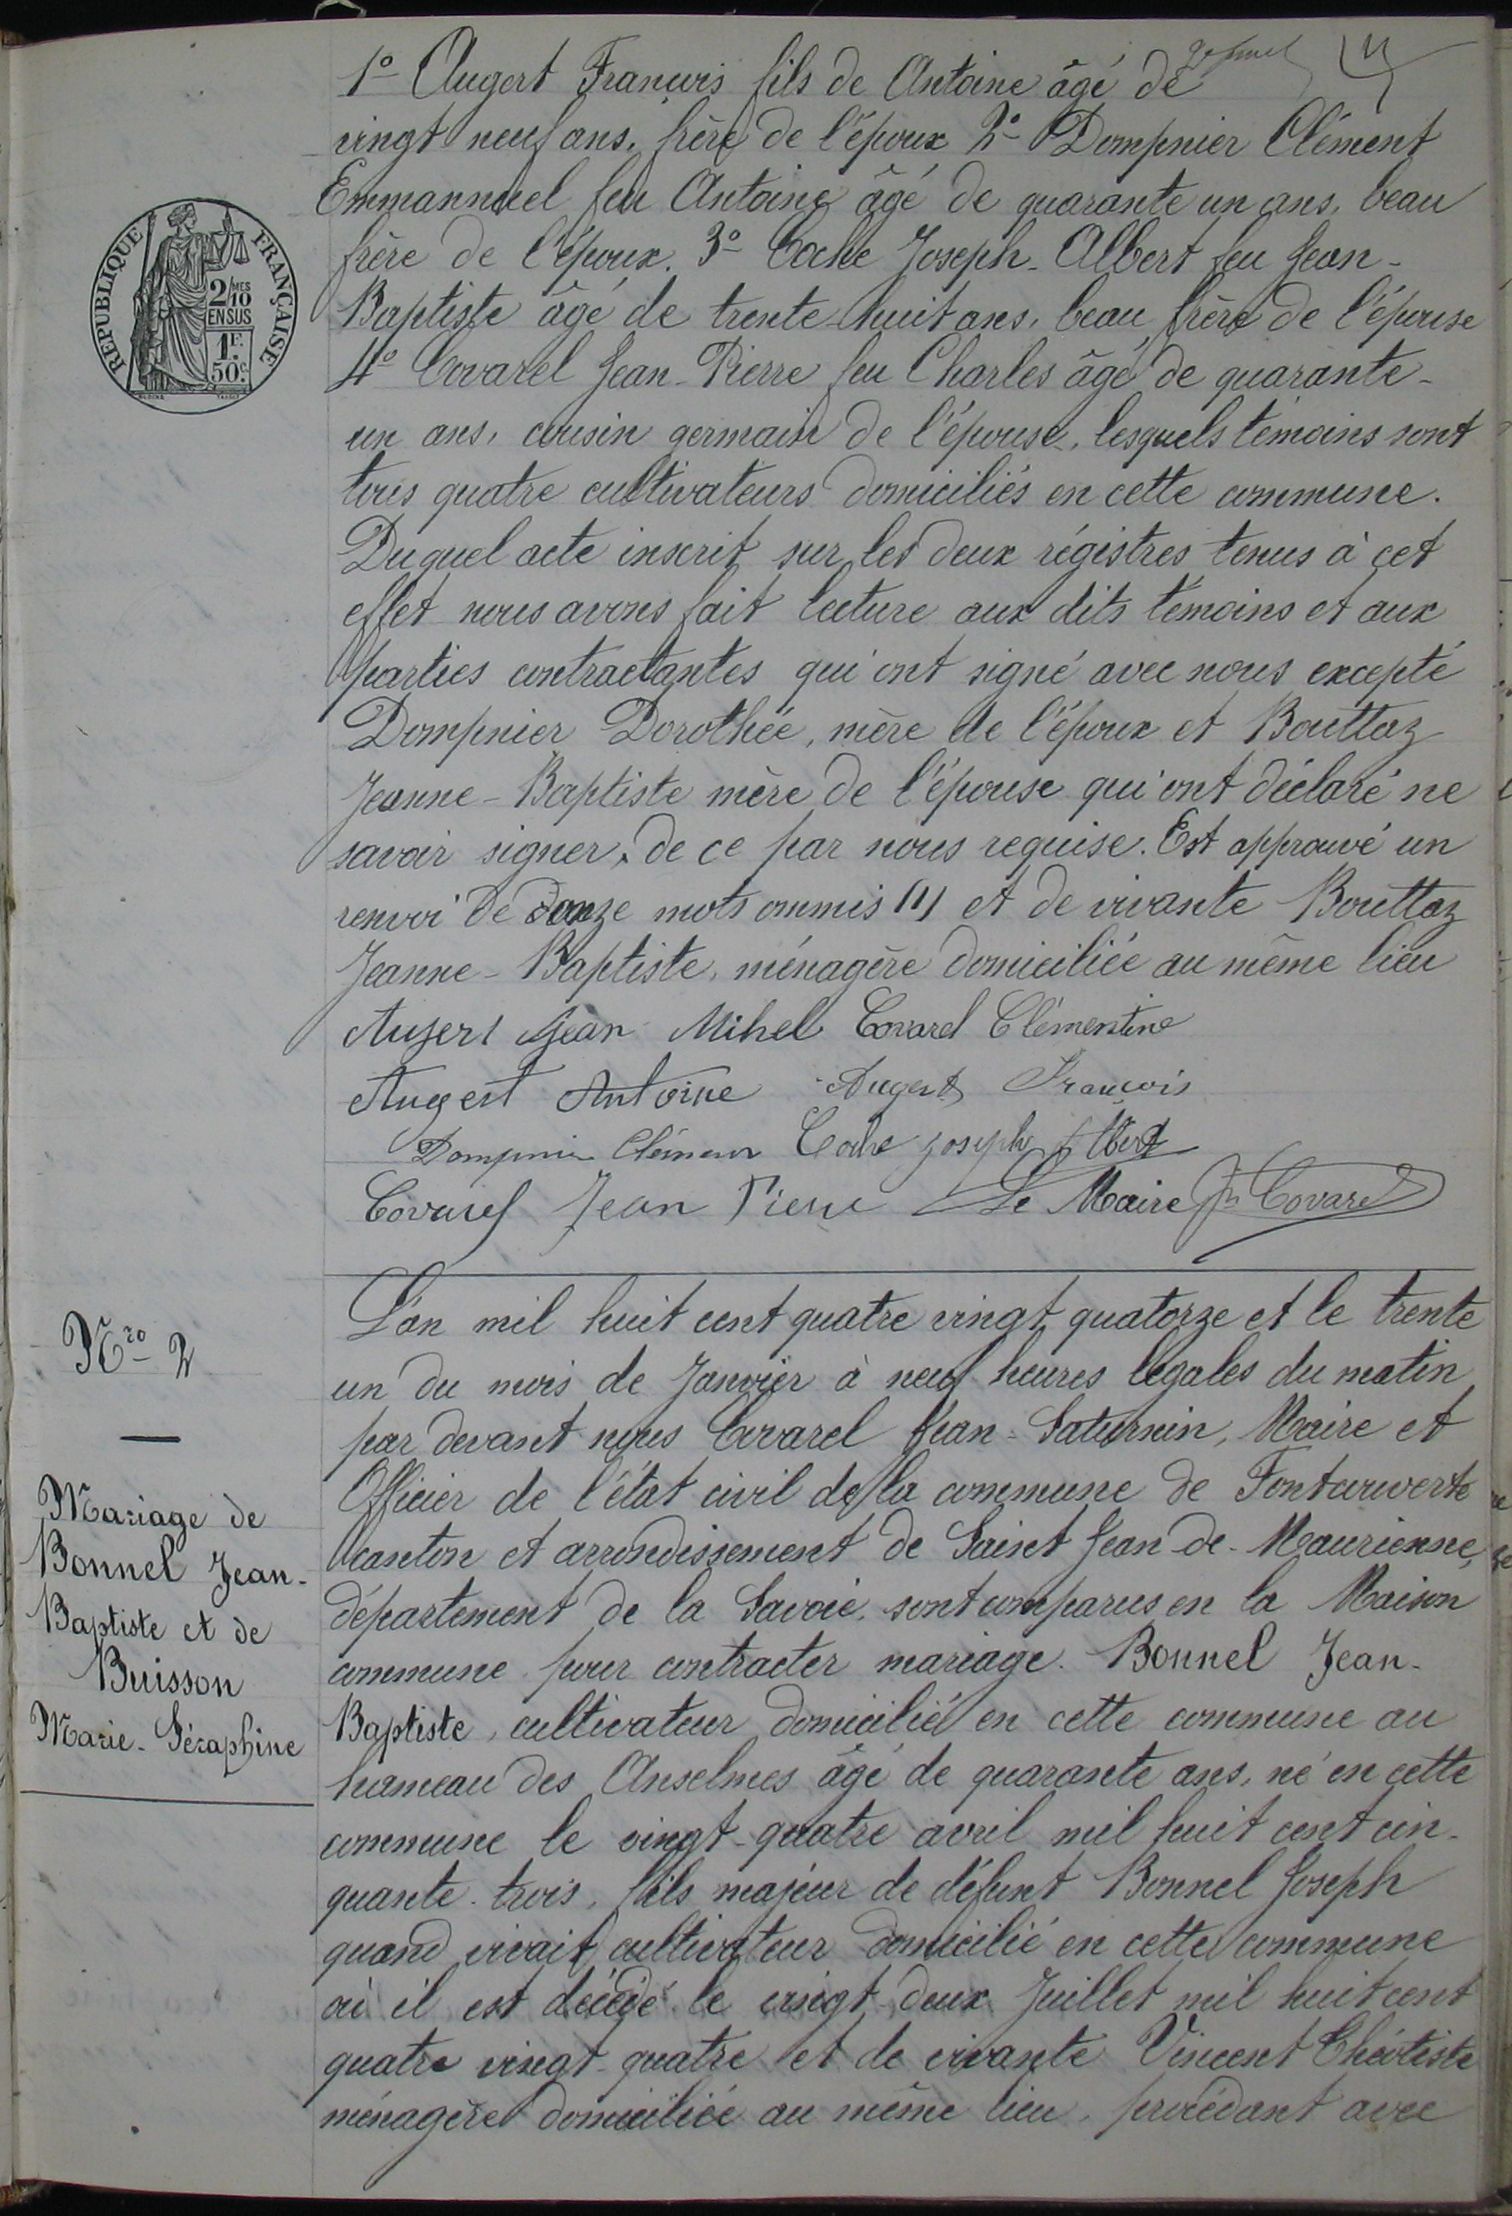 1o Augert François fils de Antoine âgé de
vingt neuf ans, frère de l'époux 2o Dompnier Clément
Emmannuel feu Antoine âgé de quarante un ans, beau
frère de l'époux. 3o Coche Joseph-Albert feu Jean-
Baptiste âgé de trente-huit ans, beau frère de l'épouse
4o Covarel Jean-Pierre feu Charles âgé de quarante-
un ans, cousin germain de l'épouse, lesquels témoins sont
tous quatre cultivateurs domiciliés en cette commune.
Duquel acte inscrit sur les deux régistres tenus à cet
effet nous avons fait lecture aux dits témoins et aux
parties contractantes qui ont signé avec nous excepté
Dompnier Dorothée, mère de l'époux et Bouttaz
Jeanne-Baptiste mère de l'épouse qui ont déclaré ne
savoir signer, de ce par nous requise. Est approuvé un
renvoi de onze mots ommis (1) et de vivante Bouttaz
Jeanne-Baptiste, ménagère domiciliée au même lieu
Augert Jean Mihel Covarel Clémentine
Augert Antoine Augert François
Dompnier Clément Coche Joseph Albert
Covarel Jean Pierre Le Maire Jn Covarel
REPUBLIQUE FRANÇAISE
2/10 MES
EN SUS
1F.
50c.
Nro 2
Mariage de
Bonnel Jean-
Baptiste et de
Buisson
Marie-Séraphine
L'an mil huit cent quatre vingt quatorze et le trente
un du mois de Janvier à neuf heures légales du matin
par devant nous Covarel Jean-Saturnin, Maire et
Officier de l'état civil de la commune de Fontcouverte
canton et arrondissement de Saint Jean-de-Maurienne,
département de la Savoie, sont comparus en la Maison
commune pour contracter mariage. Bonnel Jean-
Baptiste, cultivateur domicilié en cette commune au
hameau des Anselmes âgé de quarante ans, né en cette
commune le vingt-quatre avril mil huit cent cin-
quante-trois, fils majeur de défunt Bonnel Joseph
quand vivait cultivateur domicilié en cette commune
où il est décédé le vingt-deux Juillet mil huit cent
quatre vingt quatre et de vivante Vincent
ménagère domiciliée au même lieu, procédant avec